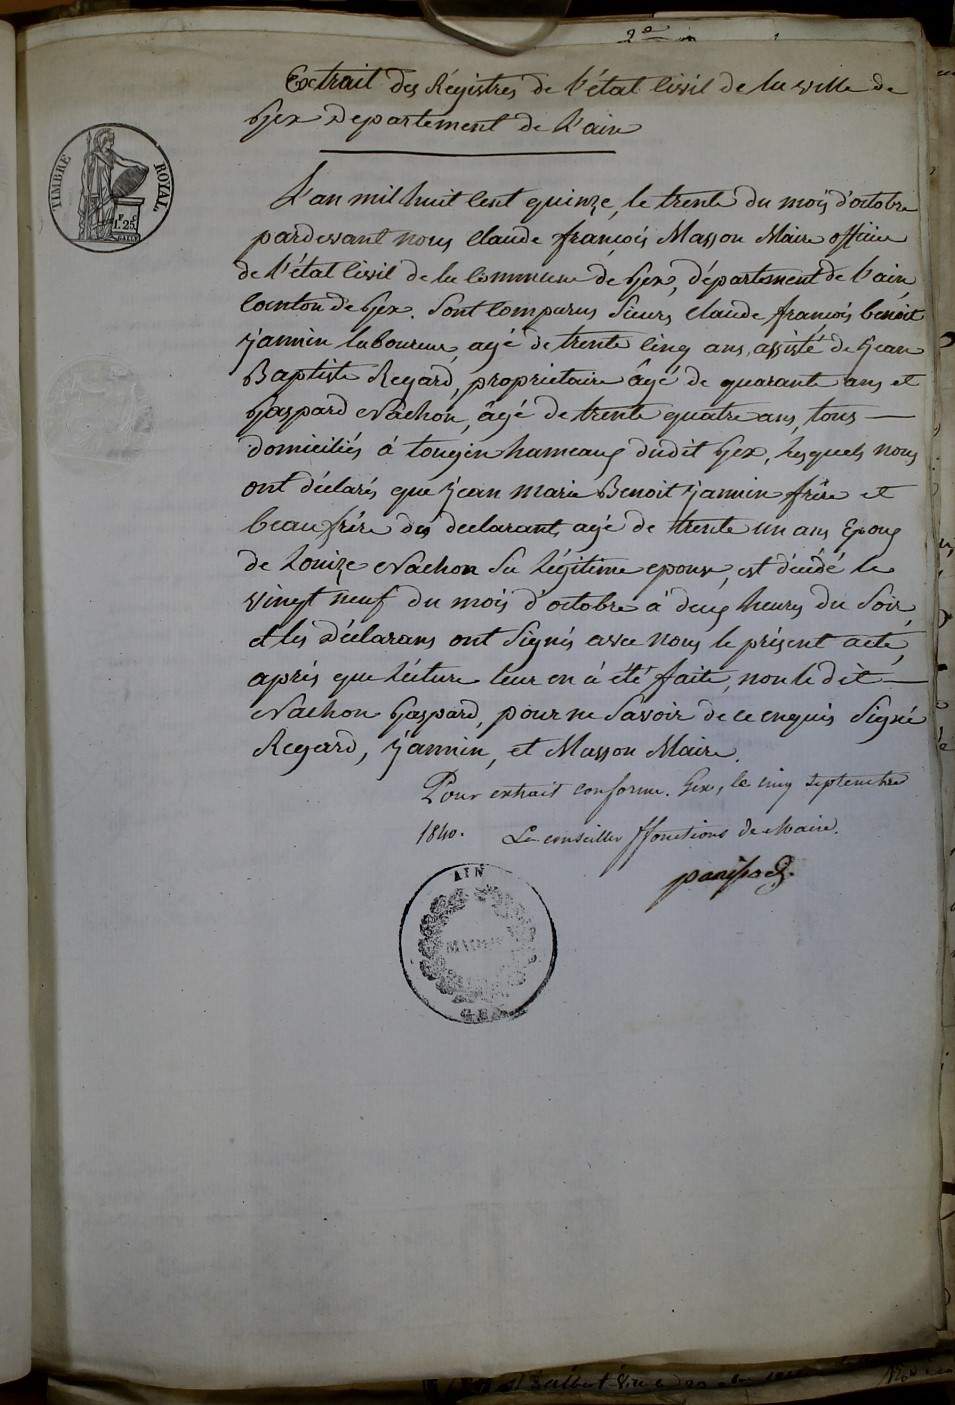 2e
Extrait des Régistres de l'état Civil de la ville de
Gex Departement de l'ain
TIMBRE ROYAL
1F.25C
L'an mil huit Cent quinze, le trente du mois d'octobre
pardevant nous Claude françois Masson Maire officier
de l'état Civil de la Commune de Gex, département de l'ain,
Canton de Gex. Sont Comparus Sieurs Claude françois benoit
Jannin laboureur, agé de trente Cinq ans, assisté de Jean
Baptiste Regard, proprietaire âgé de quarante ans et
Gaspard Vachon, âgé de trente quatre ans, tous
domiciliés à tougin hameaux dudit Gex, lesquels nous
ont déclarés que Jean Marie Benoit Jannin frère et
beau frère des declarants agé de trente un ans Epoux
de Louize Vachon Sa légitime epouse, est décédé le
vingt neuf du mois d'octobre à deux heures du Soir,
et les Déclarans ont Signés avec nous le présent acte,
après que lécture leur en à été faite, non le dit
Vachon Gaspard, pour ne Savoir de ce enquis Signé
Regard, Jannin, et Masson Maire.
Pour extrait conforme. Gex, le cinq septembre
1840. Le conseiller ffonctions de Maire.
AIN
MAIRIE
GEX